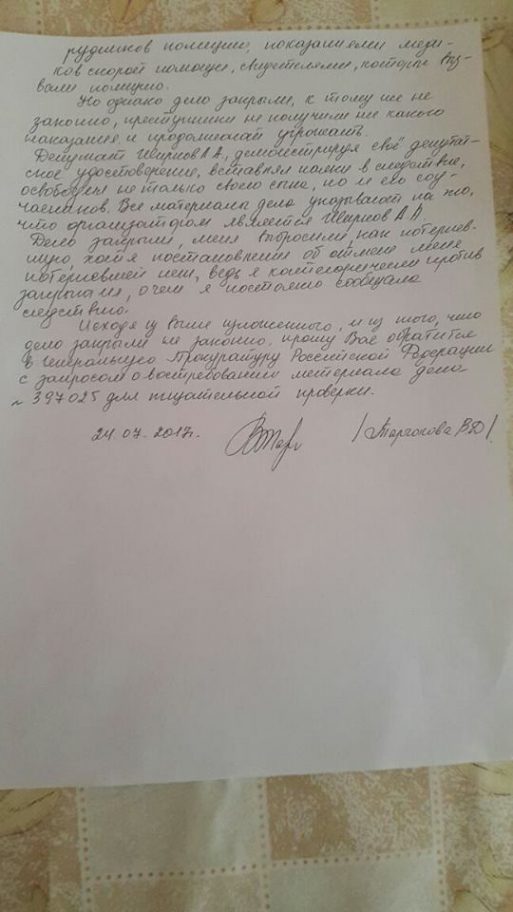 рудников полиции, показаниями меди-
ков скорой помощи, свидетелями, которые выз-
вали полицию.
Но однако дело закрыли, к тому же не
законно, преступники не получили не какого
наказания и продолжают угрожать.
Депутат А.А, демонстрируя своё депутат-
ское удостоверение, вставлял палки в следствие,
освободил не только своего сына, но и его соу-
частников. Все материалы дела указывают на то,
что организатором является А.А.
Дело закрыли, меня выбросили, как потерпев-
шую, хотя постановления об отмене меня
потерпевшей нет, ведь я категорически против
закрытия, о чем я постоянно сообщала
следствию.
Исходя из выше изложенного, и из того, что
дело закрыли не законно, прошу Вас обратится
в Генеральную Прокуратуру Российской Федерации
с запросом о востребовании материала дела
№ 397025 для тщательной проверки.
24.07.2017г. /Торчокова В.Д/